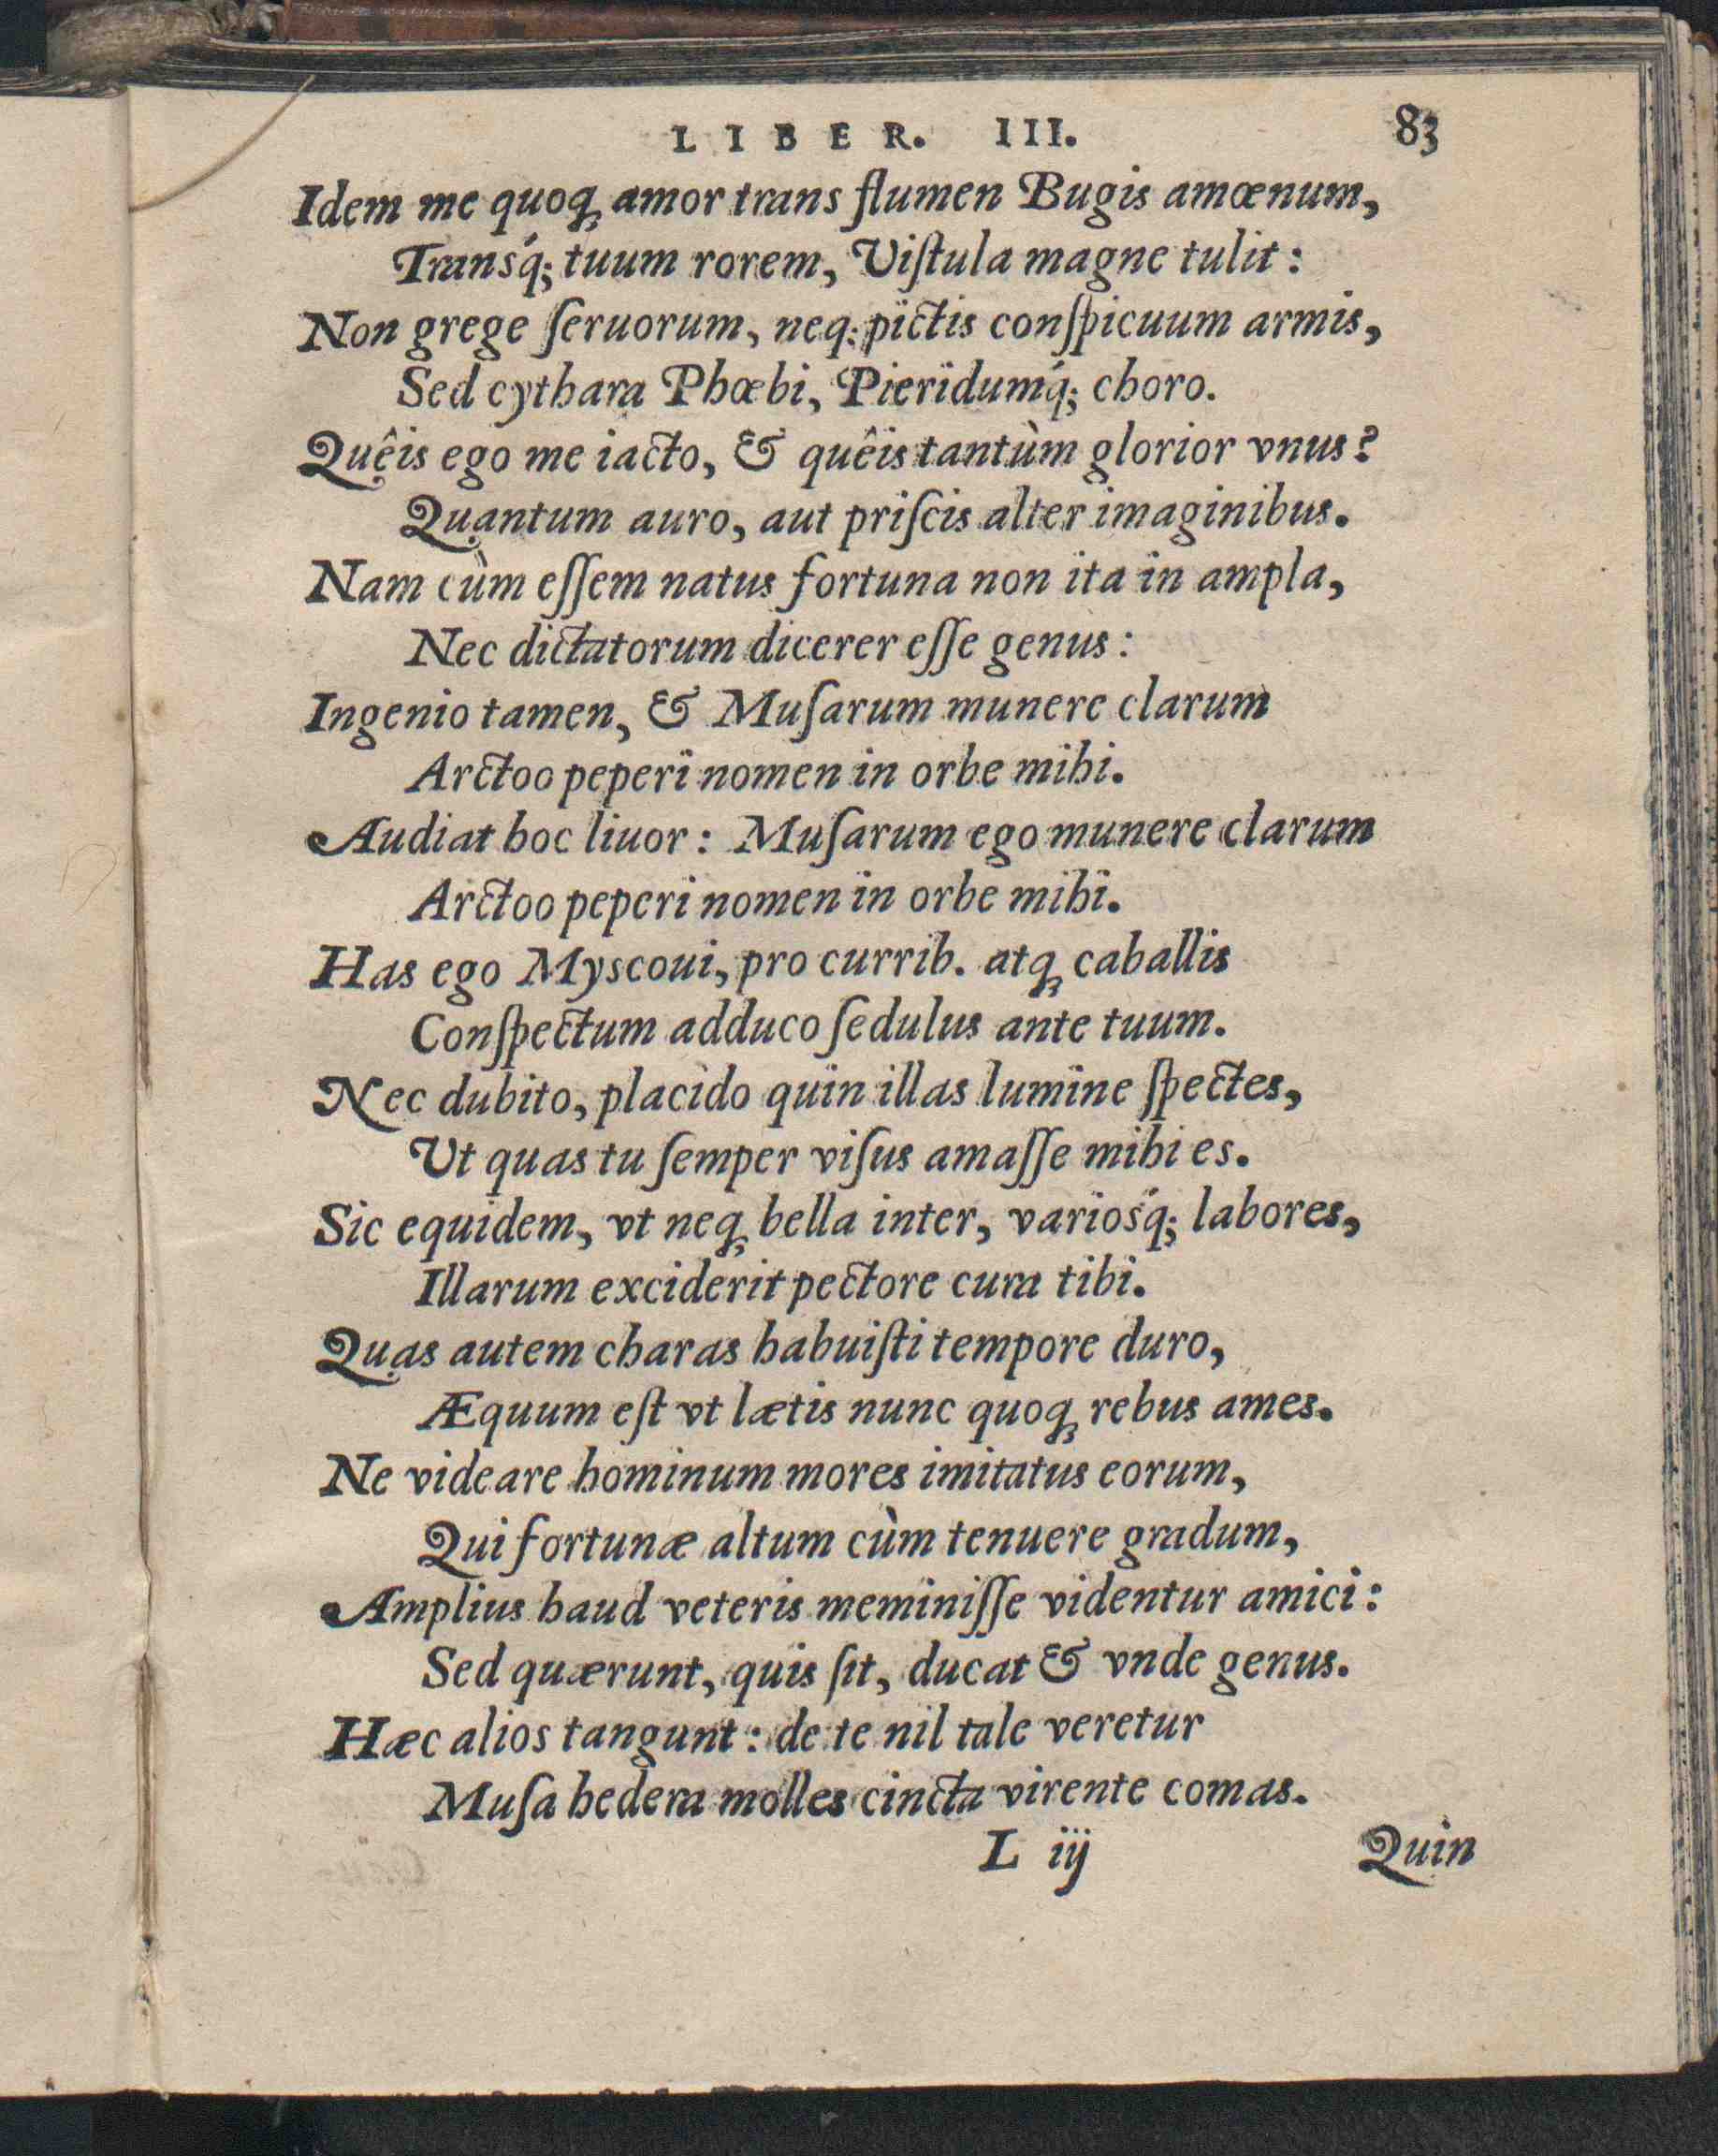 LIBER. III. 83
Idem me quoq; amor trans flumen Bugis amœnum,
Transq́; tuum rorem, Viſtula magne tulit:
Non grege ſeruorum, neq; pictis conſpicuum armis,
Sed cythara Phœbi, Pieridumq́; choro.
Quêis ego me iacto, & quêis tantùm glorior vnus?
Quantum auro, aut priſcis alter imaginibus.
Nam cùm eſſem natus fortuna non ita in ampla,
Nec dictatorum dicerer eſſe genus:
Ingenio tamen, & Muſarum munere clarum
Arctoo peperi nomen in orbe mihi.
Audiat hoc liuor: Muſarum ego munere clarum
Arctoo peperi nomen in orbe mihi.
Has ego Myscoui, pro currib. atq; caballis
Conſpectum adduco ſedulus ante tuum.
Nec dubito, placido quin illas lumine ſpectes,
Vt quas tu ſemper viſus amaſſe mihi es.
Sic equidem, vt neq; bella inter, variosq́; labores,
Illarum exciderit pectore cura tibi.
Quas autem charas habuiſti tempore duro,
Æquum eſt vt lætis nunc quoq; rebus ames.
Ne videare hominum mores imitatus eorum,
Qui fortunæ altum cùm tenuere gradum,
Amplius haud veteris meminiſſe videntur amici:
Sed quærunt, quis ſit, ducat & vnde genus.
Hæc alios tangunt: de te nil tale veretur
Muſa hedera molles cincta virente comas.
L iij Quin